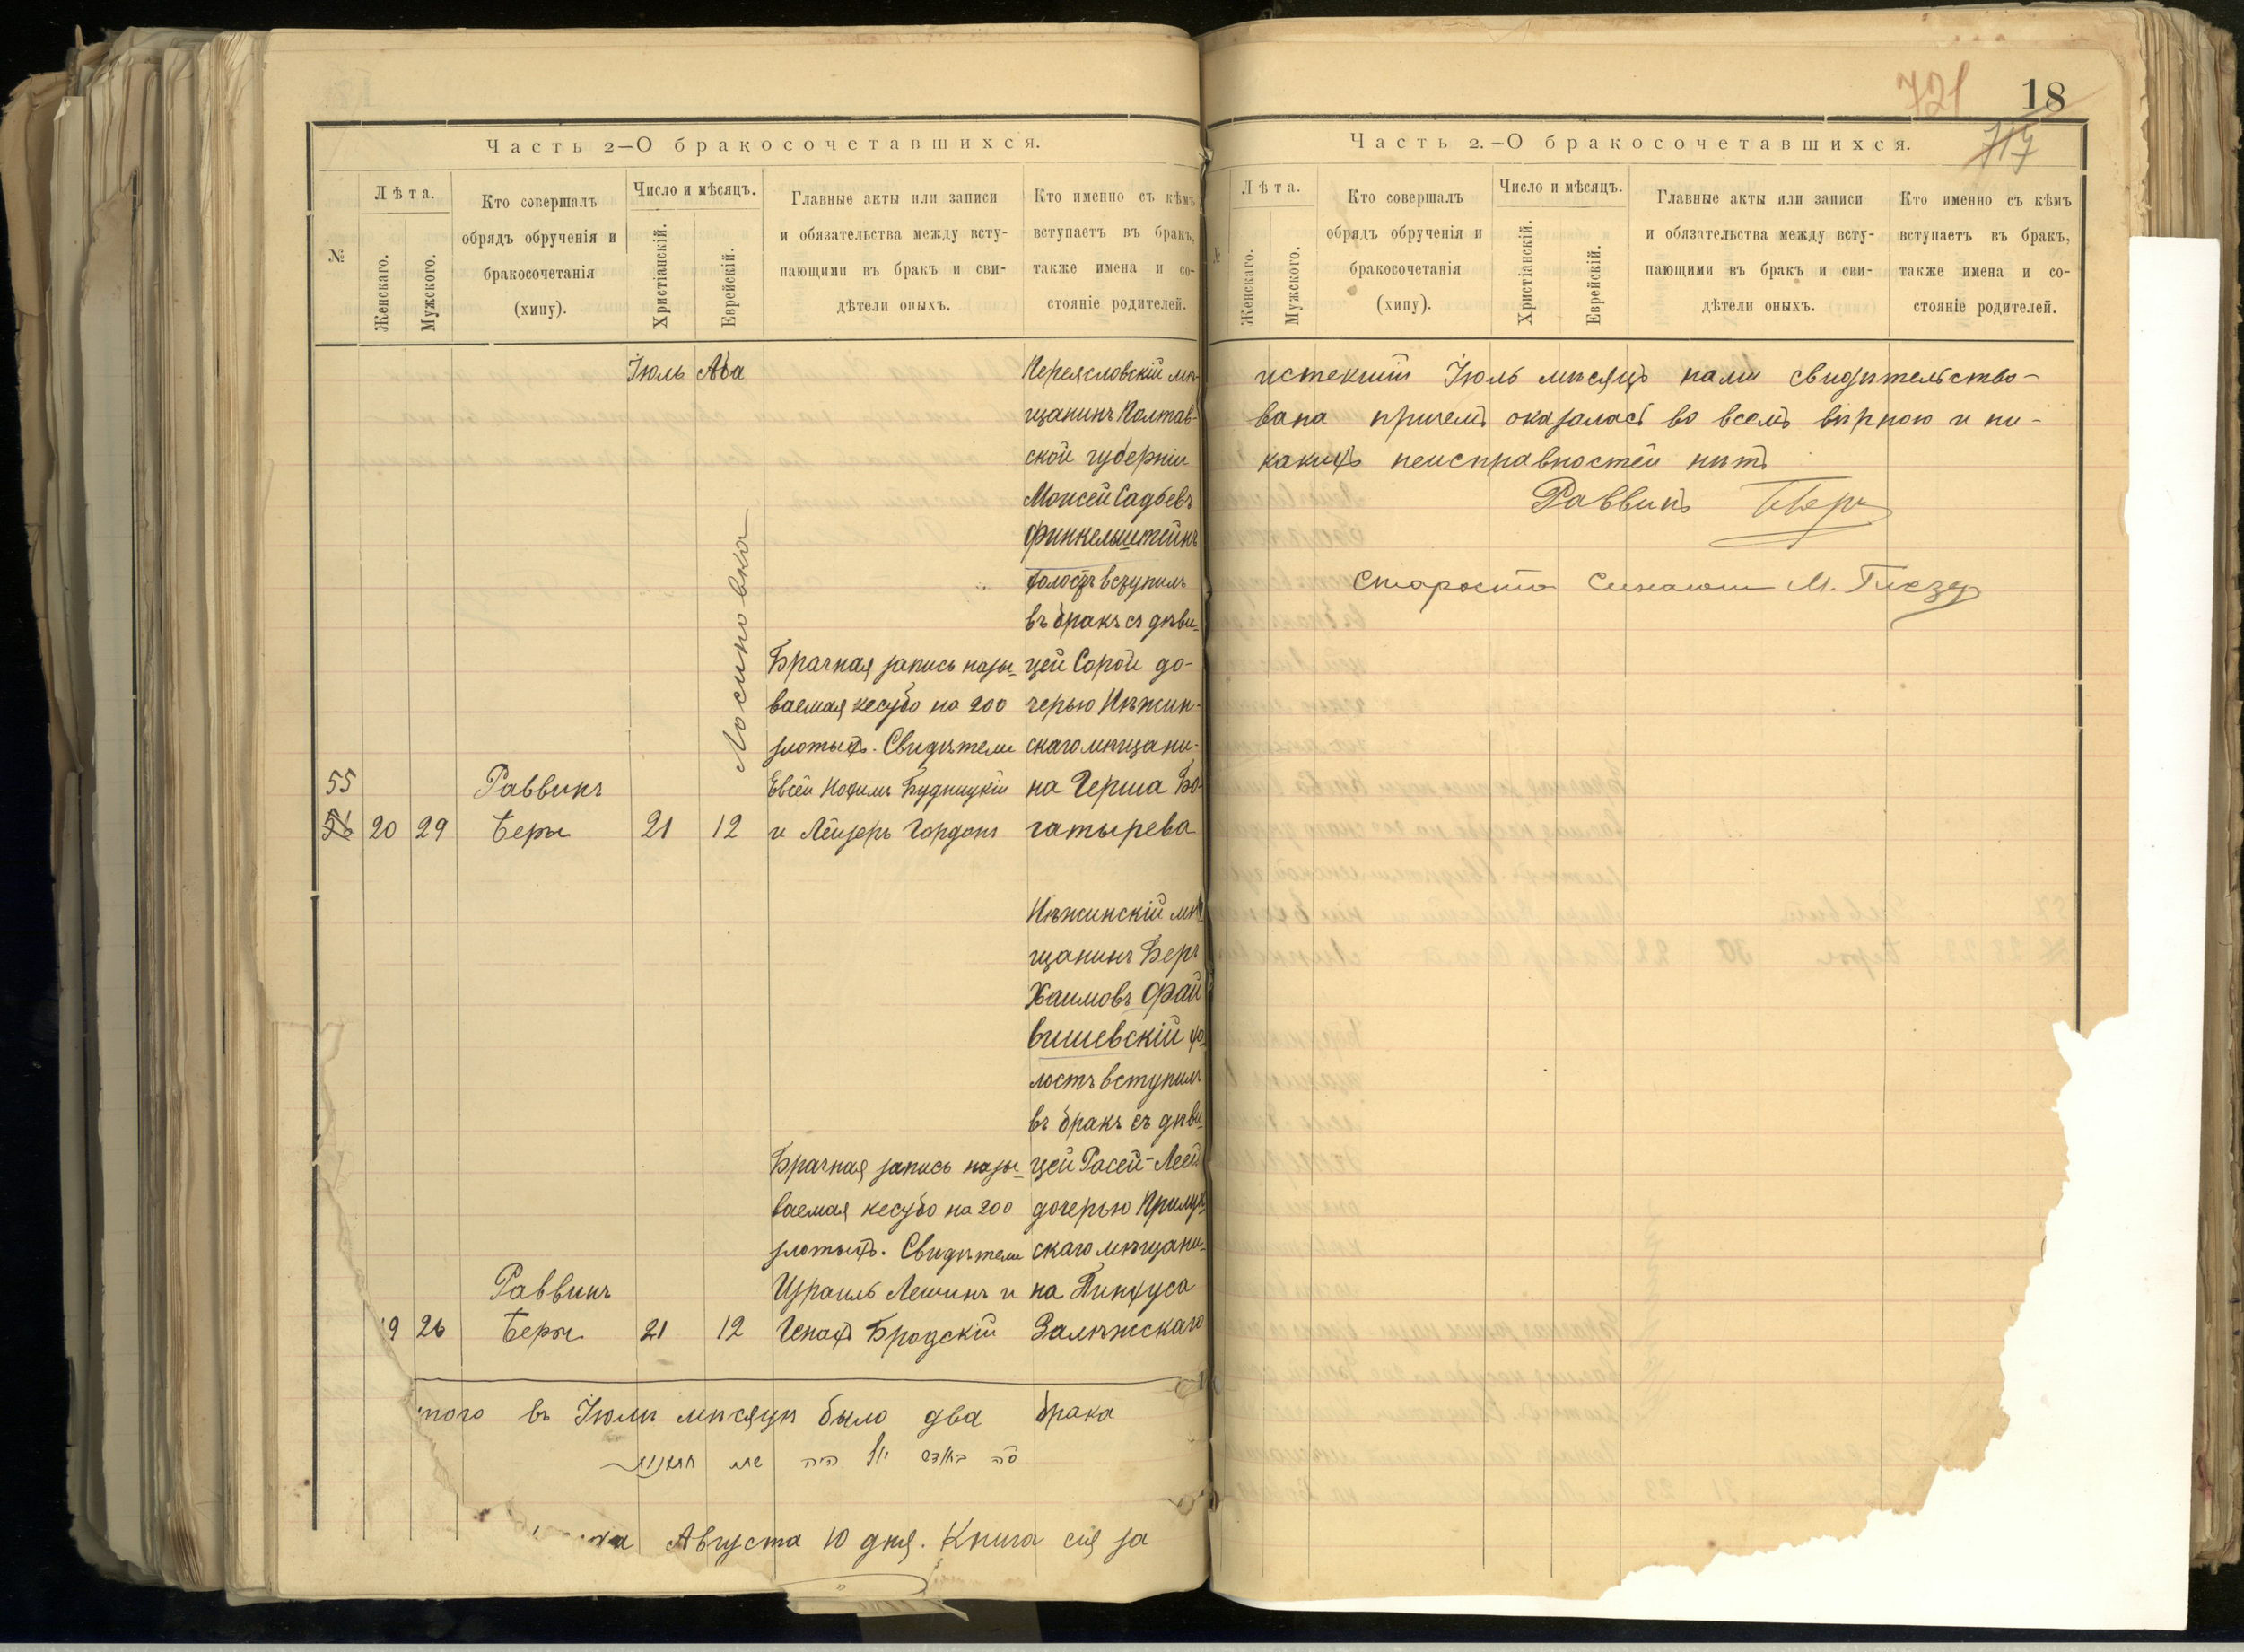 Часть 2—О бракосочетавшихся.
№
Лѣта.
Женскаго.
Мужского.
Кто совершалъ
обрядъ обрученія и
бракосочетанія
(хипу).
Число и мѣсяцъ.
Христіанскій.
Еврейскій.
Главные акты или записи
и обязательства между всту-
пающими въ бракъ и сви-
дѣтели оныхъ.
Кто именно съ кѣмъ
вступаетъ въ бракъ,
также имена и со-
стояніе родителей.
Іюль Ава
Переясловскій мѣ-
щанинъ Полтав-
ской губерніи
Моисей Садьевъ
Финкельштейнъ
холостъ вступилъ
въ бракъ съ дѣви-
цей Сорой до-
черью Нѣжин-
скаго мѣщани-
на Герша Бо-
гатырева
Лосиновка
Брачная запись назы-
ваемая кесубо на 200
злотыхъ. Свидѣтели
Евсей Нохимъ Будницкій
и Лейзеръ Гордонъ
55
56 20 29
Раввинъ
Беры
21 12
Нѣжинскій мѣ-
щанинъ Беръ
Хаимовъ Фай
вишевскій хо-
лостъ вступилъ
въ бракъ съ дѣви-
цей Расей-Леей
дочерью Прилук-
скаго мѣщани-
на Пинхуса
Залѣжскаго
Брачная запись назы-
ваемая кесубо на 200
злотыхъ. Свидѣтели
Израиль Лешинъ и
Генахъ Бродскій
9 26
Раввинъ
Беры
21 12
того въ Іюлѣ мѣсяцѣ было два брака
Августа 10 дня. Книга сія за
721
18
717
Часть 2.—О бракосочетавшихся.
№
Лѣта.
Женскаго.
Мужского.
Кто совершалъ
обрядъ обрученія и
бракосочетанія
(хипу).
Число и мѣсяцъ.
Христіанскій.
Еврейскій.
Главные акты или записи
и обязательства между всту-
пающими въ бракъ и сви-
дѣтели оныхъ.
Кто именно съ кѣмъ
вступаетъ въ бракъ,
также имена и со-
стояніе родителей.
истекшій Іюль мѣсяцъ нами свидѣтельство-
вана причемъ оказалась во всемъ вѣрною и ни-
какихъ неисправностей нѣтъ
Раввинъ
Староста М.